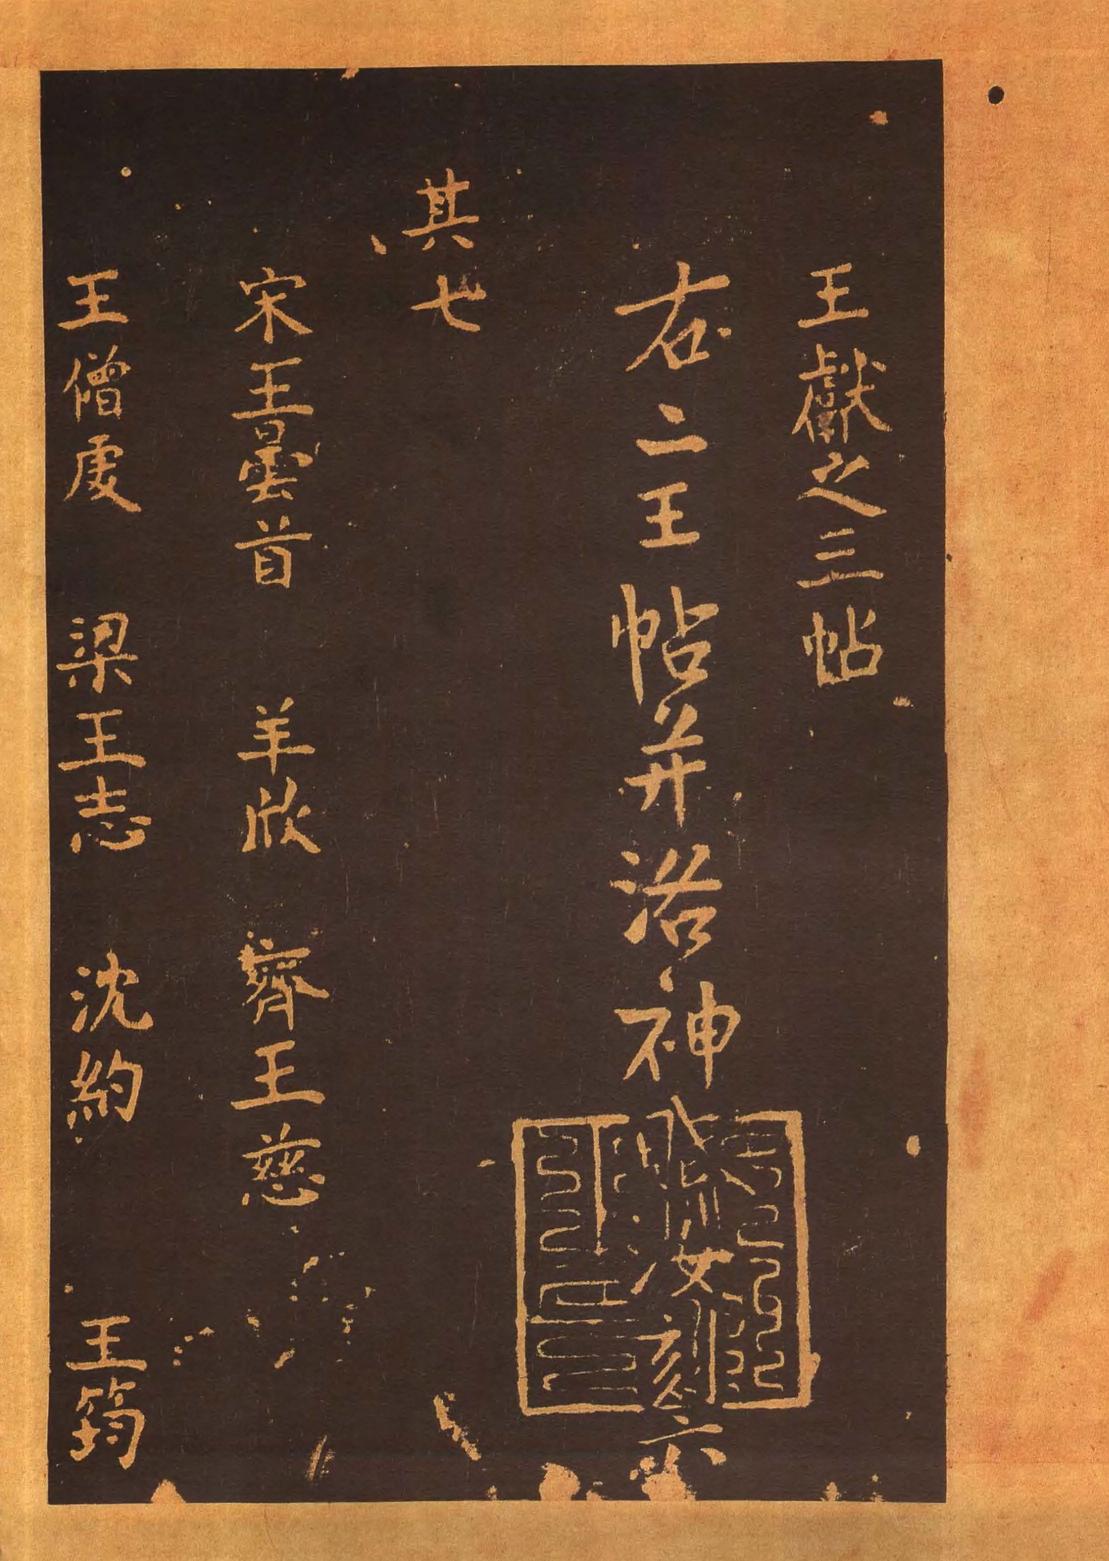 王獻之三帖
右二王帖并洛神賦汝刻六
其七
宋王曇首 羊欣 齊王慈
王僧虔 梁王志 沈約 王筠